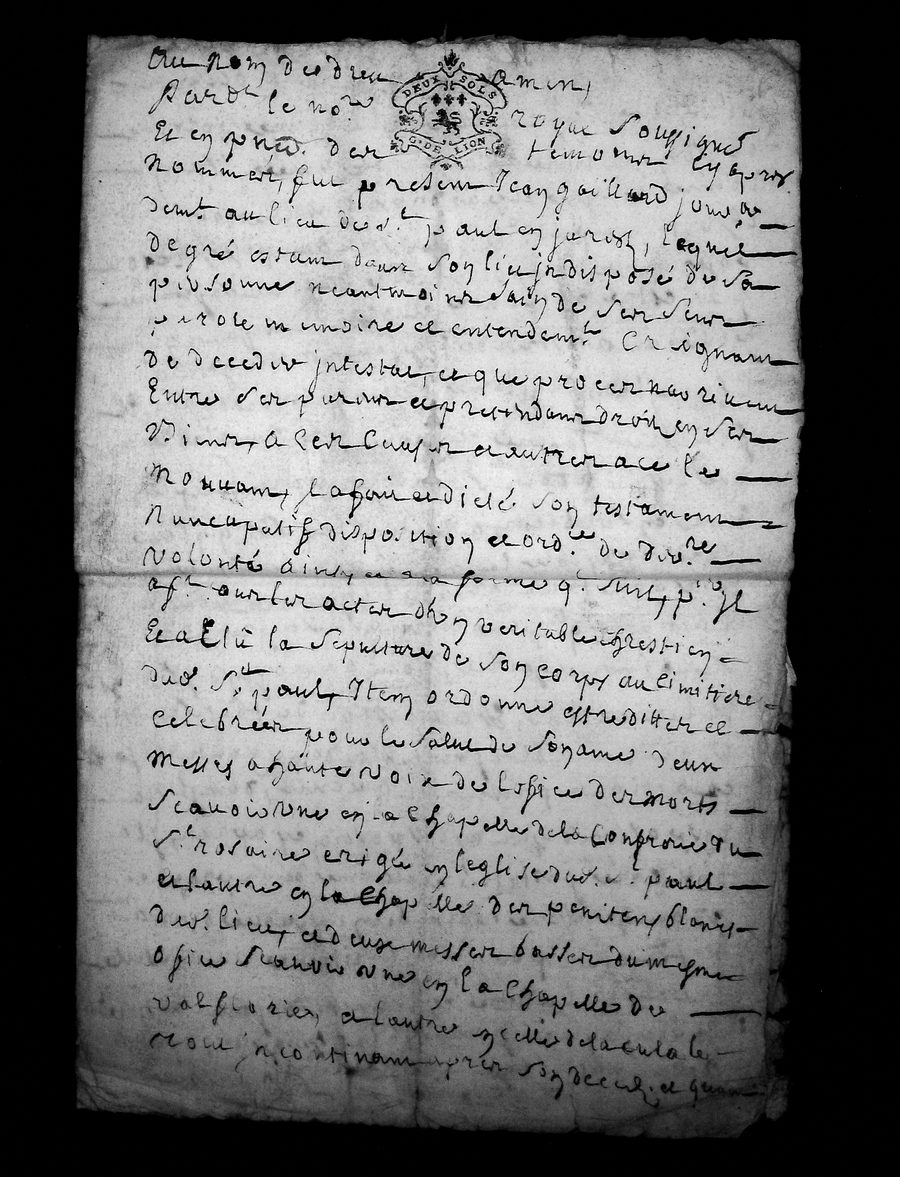 Au nom de dieu amen,
DEUX SOLS
G. DE LION
Pard.t le no.re royal soussigné
Et en pnce. des temoins cy apres
Nommés, fut present Jean gaillard
dem.t au lieu de s.t paul en jarest, lequel
de gré estant dans son lict indisposé de sa
personne neantmoins sain de ses sens
parole memoire et entendem.t Craignant
de deceder intestat, et que proces navrivent
Entre ses parens et pretendans droit en ses
Biens, a ces causes et autres a ce le
Mouvant, la fait et dicté son testament
Nuncupatif disposition et ord.ce de der.re
volonté ainsy et forme q.t suit, p.r Il
a f.t tous les actes dun veritable chrestien
Et a Elû la sepulture de son corps au cimittiere
dud. S.t paul, Item ordonne estre dittes et
Celebrées pour le salut de son ame deux
Messes a haute voix de lofice des morts
Scavoir une en la Chapelle de la Confrerie du
S.t rosaire erigée en leglise dud. s.t paul
et lautre en la Chapelle des penitens blancs
dud. lieu, et deux messes basses du mesme
ofice scavoir une en la Chapelle de
valflorie, et lautre en celle de la
incontinant apres son deces, et quant